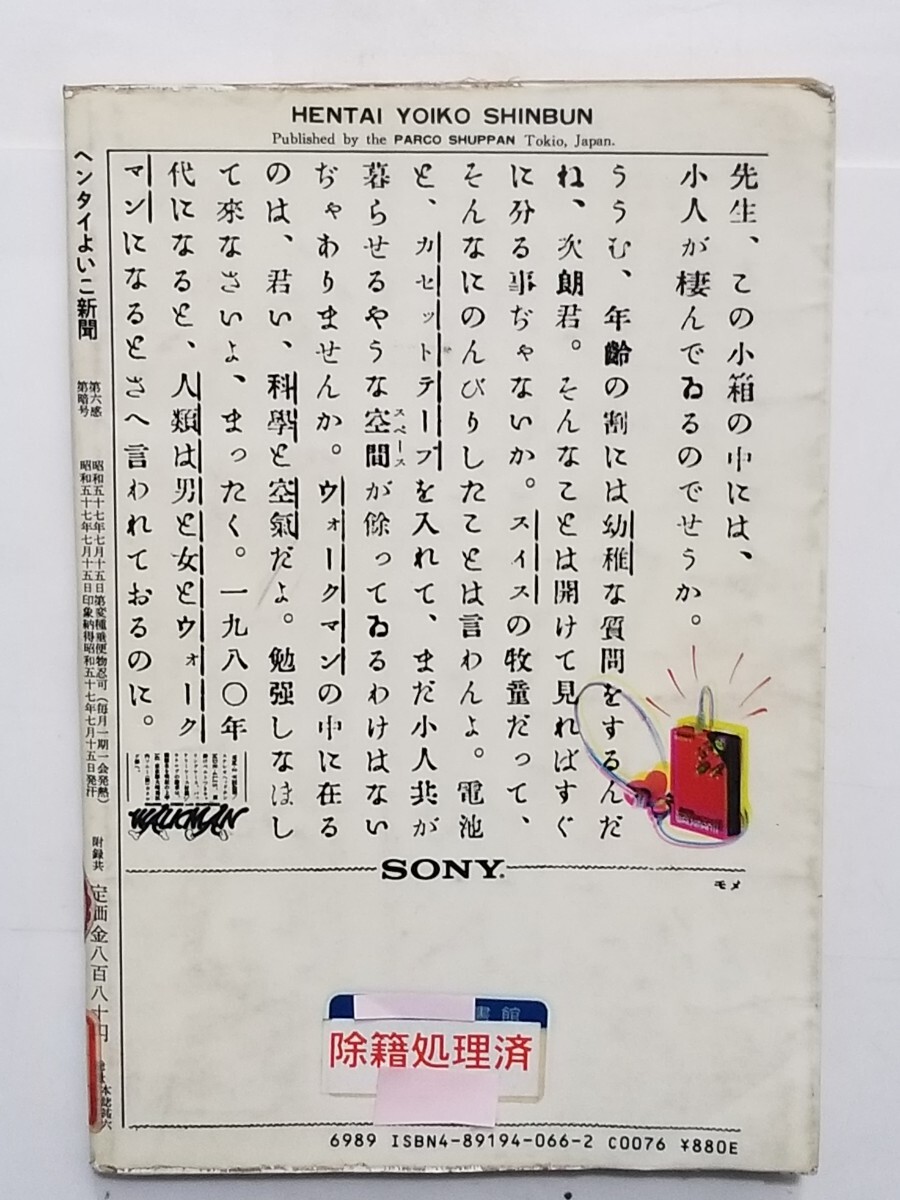 HENTAI YOIKO SHINBUN
Published by the PARCO SHUPPAN Tokio, Japan.
先生、この小箱の中には、
小人が棲んでゐるのでせうか。
ううむ、年齢の割には幼稚な質問をするんだ
ね、次朗君。そんなことは開けて見ればすぐ
に分る事ぢゃないか。スイスの牧童だって、
そんなにのんびりしたことは言わんよ。電池
と、カセットテープを入れて、まだ小人共が
暮らせるやうな空間が餘ってゐるわけはない
スペース
ぢゃわりませんか。ウォークマンの中に在る
のは、君い、科學と空氣だよ。勉强しなほし
て來なさいよ、まったく。一九八〇年
代になると、人類は男と女とウォーク
マンになるとさへ言われておるのに。
WALKMAN
SONY.
モメ
ヘンタイよいこ新聞
第六感
第暗号
昭和五十七年七月十五日第変種重便物忍可（毎月一期一会発熱）
昭和五十七年七月十五日印象納得昭和五十七年七月十五日発汗
附録共
定価金八百八十円
書館
除籍処理済
6989 ISBN4-89194-066-2 C0076 ¥880E